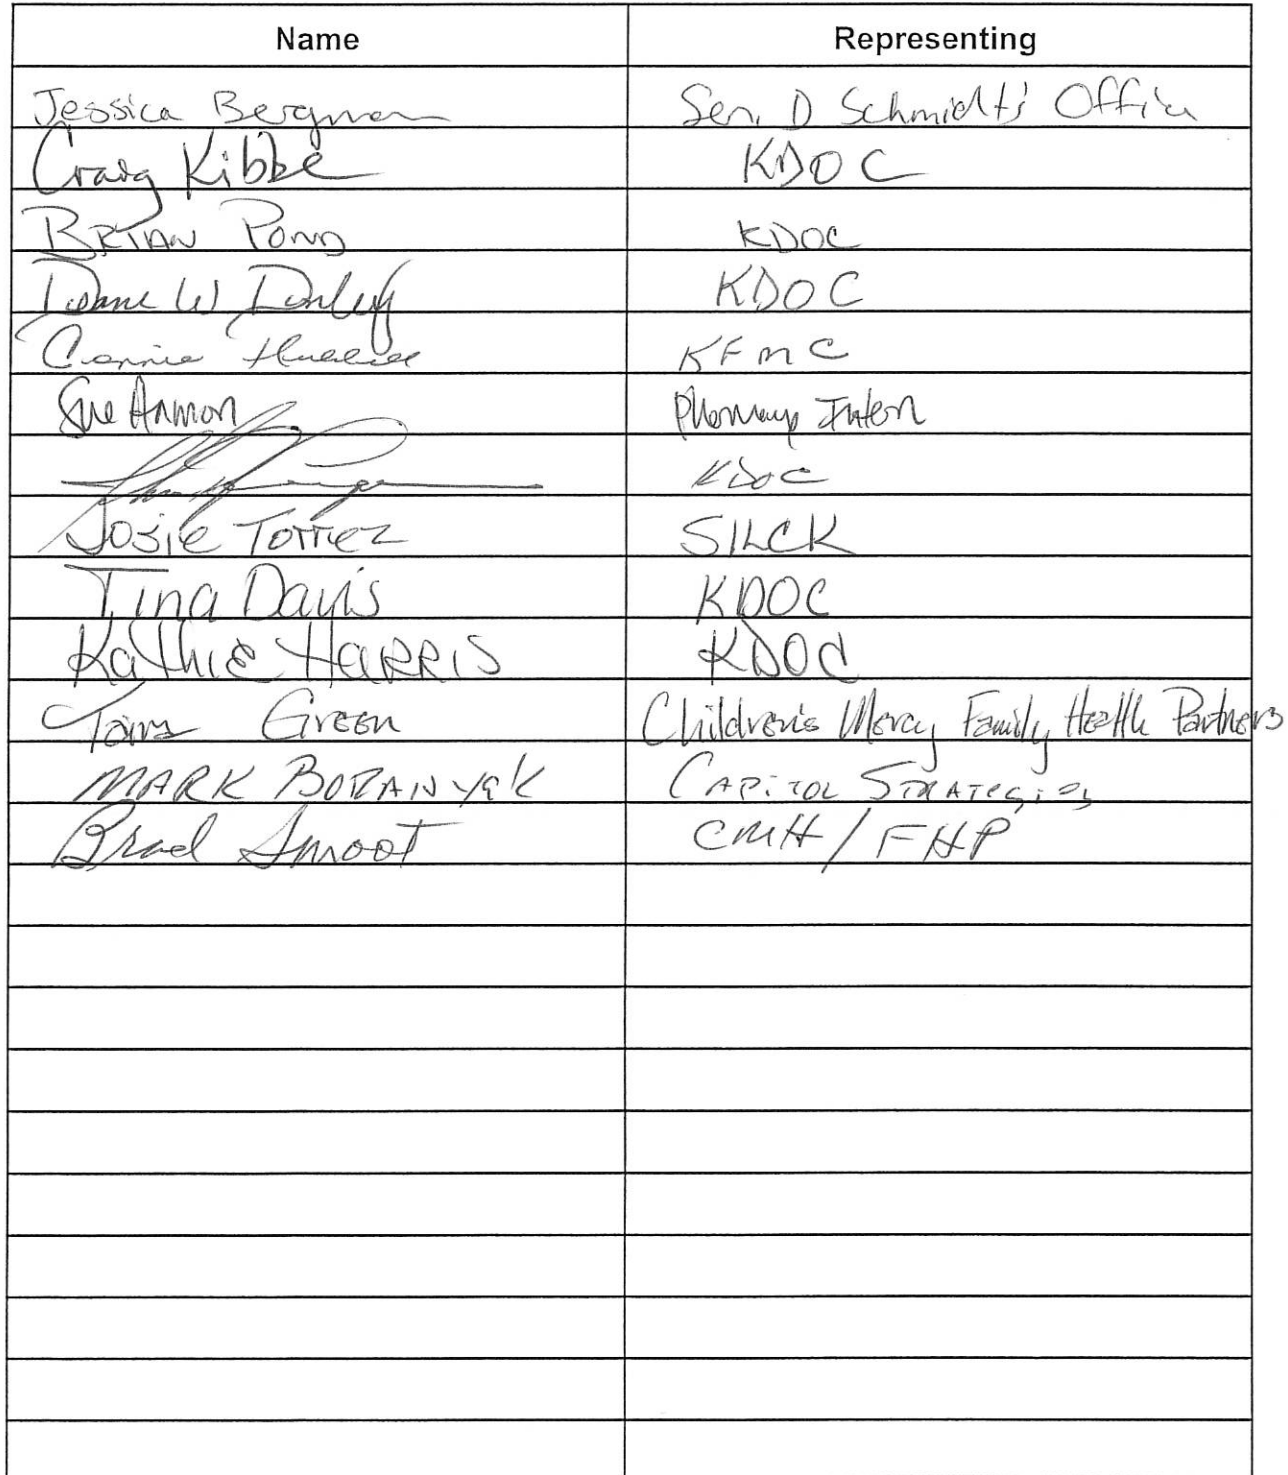 Name Representing
Jessica Bergman Sen. D Schmidt's Office
Craig Kibbe KDOC
BRIAN POND KDOC
W KDOC
Connie KFMC
Sue Ammon Pharmacy Intern
KDOC
Josie Torrez SILCK
Tina Davis KDOC
Kathie HARRIS KDOC
Green Children's Mercy Family Health Partners
MARK BORANYAK CAPITOL STRATEGIES
Brad Smoot CMH/FHP